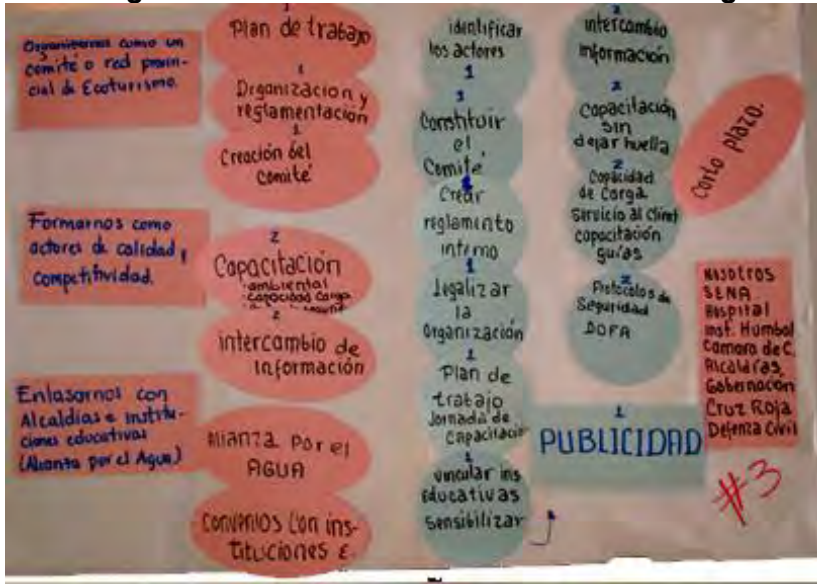 Organizarnos como un
comité o red provin-
cial de Ecoturismo.
Formarnos como
actores de calidad y
competitividad.
Enlasarnos con
Alcaldias e institu-
ciones educativas
(Alianza por el Agua)
1
Plan de trabajo
1
Organizacion y
reglamentación
1
Creación del
comité
2
Capacitación
ambiental
capacidad carga
2
intercambio de
información
Alianza Por el
AGUA
Convenios con ins-
tituciones E.
identificar
los actores
1
1
Constituir
el
Comite
Crear
reglamento
interno
1
legalizar
la
organización
1
Plan de
trabajo
Jornada de
Capacitacion
1
vincular ins
educativas
sensibilizar
2
intercambio
información
2
Capacitación
sin
dejar huella
2
Capacidad
de Carga
servicio al client
capacitación
guías
2
Protocolos de
Seguridad
DOFA
1
PUBLICIDAD
Corto plazo.
Nosotros
SENA
Hospital
inst. Humbol
Camara de C.
Alcaldías,
Gobernación
Cruz Roja
Defenza Civil
#3